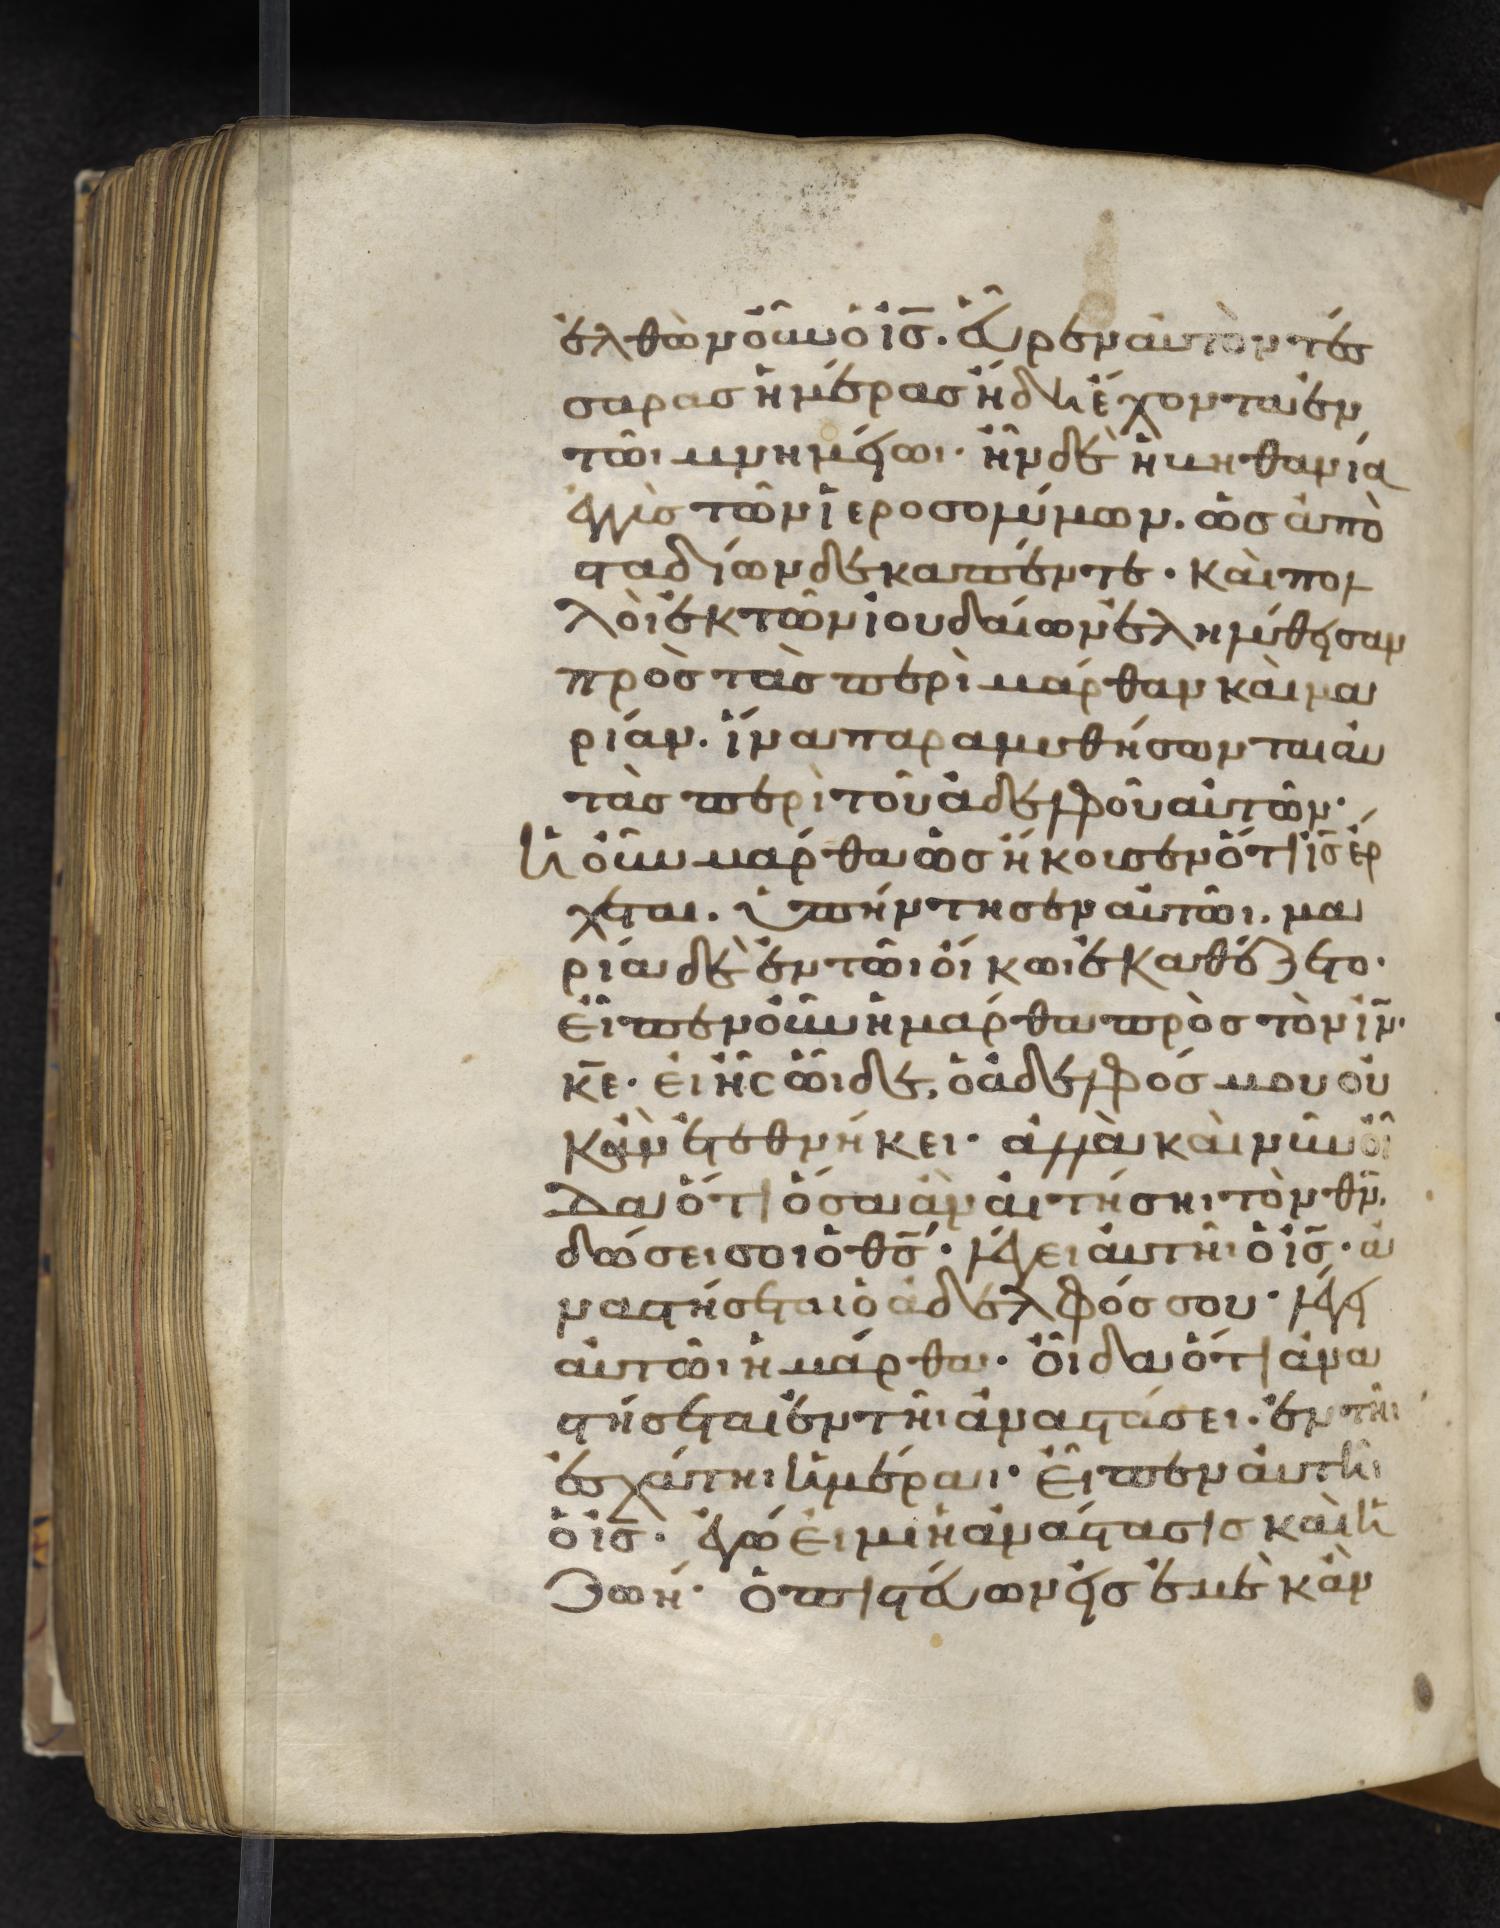 ἐλθὼν οὖν ὁ ἰς̅. εὗρεν αὐτὸν τέσ
σαρας ἡμέρας ἤδη ἔχοντα ἐν
τῶι μνημείωι· ἦν δὲ ἡ βηθανία
ἐγγὺς τῶν ἱεροσολύμων. ὡς ἀπὸ
σταδίων δεκαπέντε· καὶ πολ
λοὶ ἐκ τῶν ἰουδαίων ἐληλύθεισαν
πρὸς τὰς περὶ μάρθαν καὶ μα
ρίαν. ἵνα παραμυθήσωνται αὐ
τὰς περὶ τοῦ ἀδελφοῦ αὐτῶν·
ἡ οὖν μάρθα ὡς ἤκουσεν ὅτι ἰς̅ ἔρ
χεται. ὑπήντησεν αὐτῶι. μα
ρία δὲ ἐν τῶι οἴκωι ἐκαθέζετο·
εἶπεν οὖν ἡ μάρθα πρὸς τὸν ἰν̅·
κε̅· εἰ ἦς ὧδε, ὁ ἀδελφός μου οὐ
κ ἂν ἐτεθνήκει· ἀλλὰ καὶ νῦν οἶ
δα ὅτι ὅσα ἂν αἰτήσηι τὸν θν̅.
δώσει σοι ὁ θς̅· λέγει αὐτῆι ὁ ἰς̅· ἀ
ναστήσεται ὁ ἀδελφός σου· λέγει
αὐτῶι ἡ μάρθα· οἶδα ὅτι ἀνα
στήσεται ἐν τῆι ἀναστάσει. ἐν τῆι
ἐσχάτηι ἡμέραι· εἶπεν αὐτῆι
ὁ ἰς̅· ἐγώ εἰμι ἡ ἀνάστασις καὶ ἡ
ζωή· ὁ πιστεύων εἰς ἐμὲ κἂν